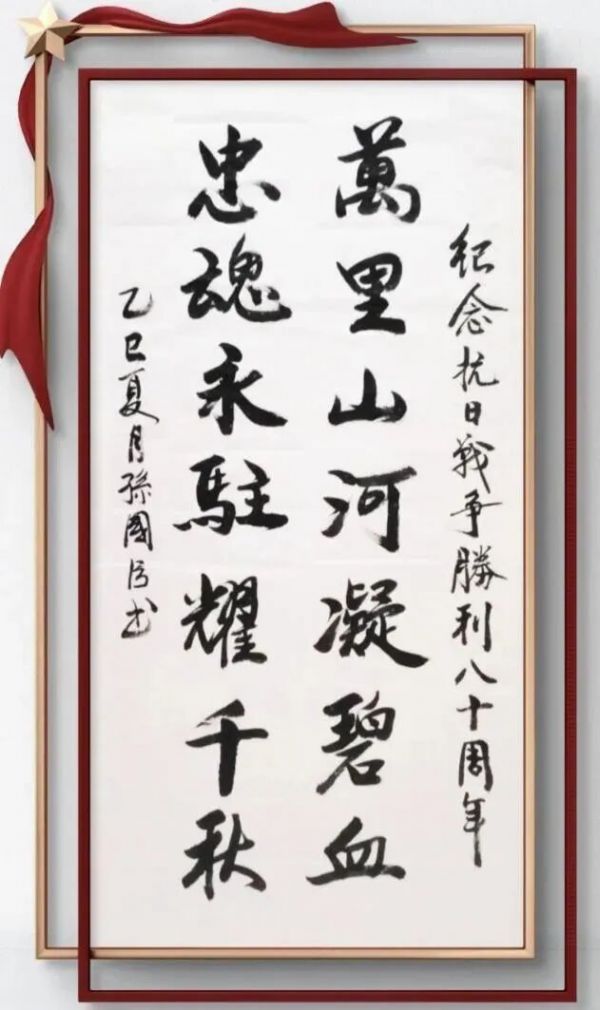 紀念抗日戰爭勝利八十周年
萬里山河凝碧血
忠魂永駐耀千秋
乙巳夏月孫國信书